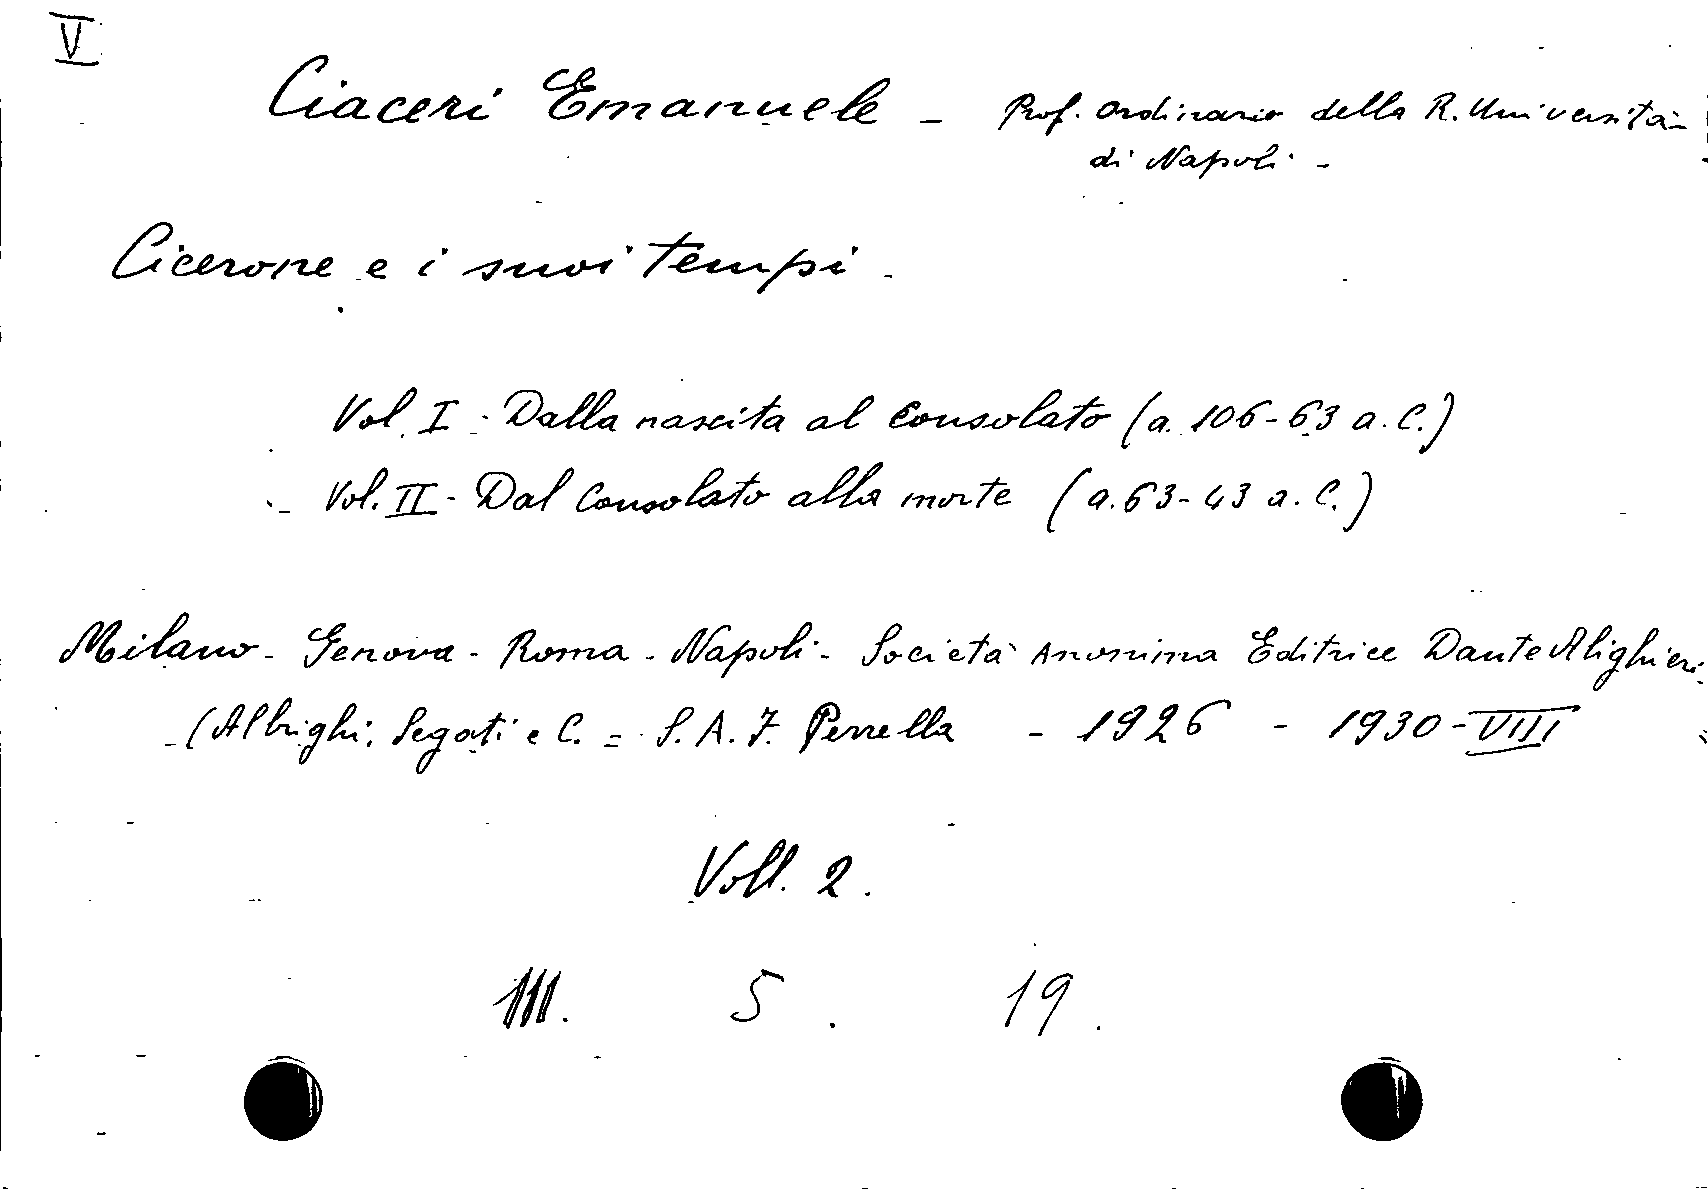 V
Ciaceri Emanuele - Prof. Ordinario della R. Università
di Napoli -
Cicerone e i suoi tempi -
Vol. I - Dalla nascita al Consolato (a. 106-63 a. C.)
Vol. II - Dal Consolato alla morte (a. 63-43 a. C.)
Milano - Genova - Roma - Napoli - Società Anonima Editrice Dante Alighieri
- (Albrighi, Segati e C. = S. A. F. Perrella - 1926 - 1930 - VIII
Voll. 2.
III. 5. 19.